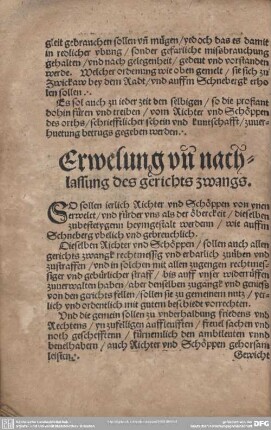 gkeit gebrauchen sollen vñ mügen/ yedoch das es damit
in redlicher vbung/ sonder gefärliche misabrauchung
gehalten/ vnd nach gelegenheit/ gedeut vnd vorstanden
werde. Welcher ordenung wie oben gemelt/ sie sich zu
Zwickaw bey dem Radt/ vnd auffm Schneberg erho
len sollen.
Es sol auch zu ieder zeit den selbigen/ so die profant
dohin füren vnd treiben/ vom Richter vnd Schöppen
des orths/ schriefftlicher schein vnd kuntschafft/ zuuer-
huetung betrugs gegeben werden.
Erwelung vñ nach-
lassung des gerichts zwangs.
SO sollen ierlich Richter vnd Schöppen von ynen
erwelet/ vnd fürder vns als der öberckeit/ dieselben
zubestetygenn heymgestalt werdenn/ wie auffm
Schneberg vblich vnd gebreuchlich.
Dieselben Richter vnd Schöppen/ sollen auch allen
gerichts zwangk rechtmessig vnd erbarlich zuiben vnd
zustraffen/ vnd in solchen mit allen zugengen rechtmes-
siger vnd gebürlicher straff/ bis auff vnser widerruffen
zuuerwalten haben/ aber denselben zugangk vnd genieß
von den gerichts fellen/ sollen sie zu gemeinem nutz/ yer-
lich vnd ordentlich mit gutem bescheidt vorrechten.
Vnd die gemein sollen zu vnderhaldung friedens vnd
Rechtens/ zu zufelligen auffleufften/ freuel sachen vnd
noth gescheffrenn/ fürnemlich den ambtleuten vnnd
beuelhabern/ auch Richter vnd Schöppen gehorsam
leisten.
Gewicht